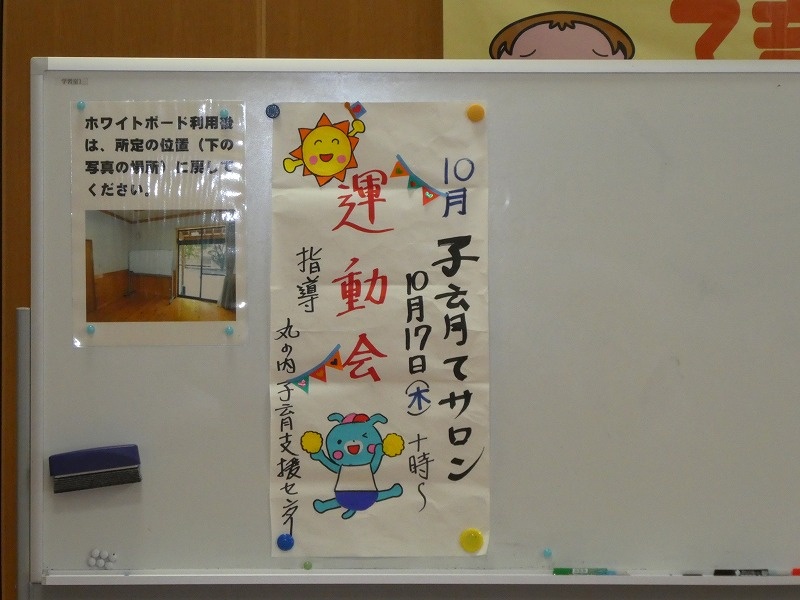 ホワイトボード利用後
は、所定の位置（下の
写真の場所）に戻して
ください。
10月
子育てサロン
10月17日(木)
十時～
運動会
指導
丸の内子育支援センター